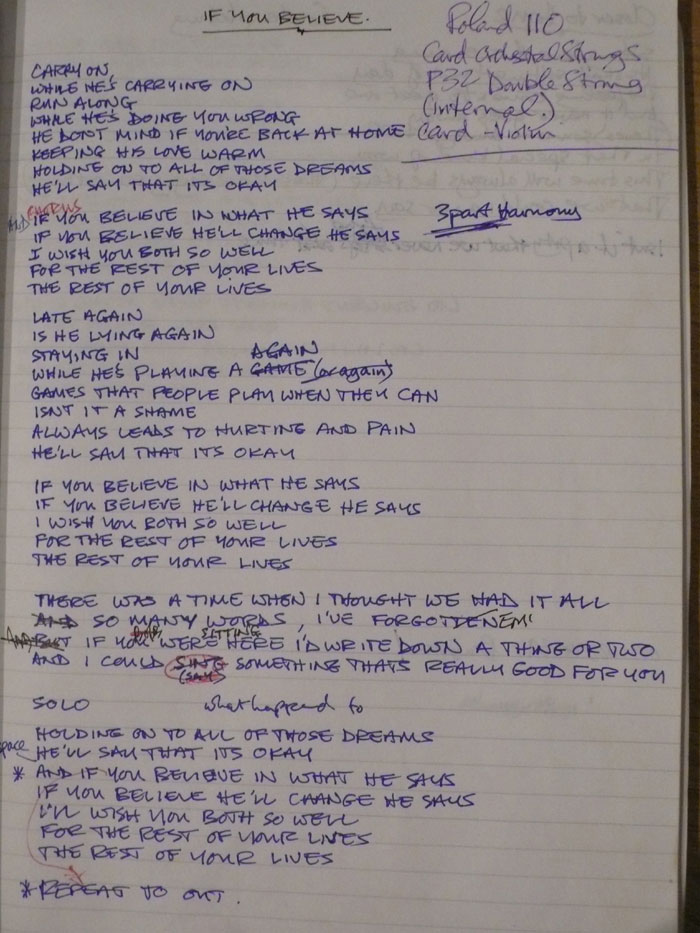 IF YOU BELIEVE.
Roland 110
Card Orchestral Strings
P32 Double String
(internal.)
Card - Violin
CARRY ON,
WHILE HE'S CARRYING ON
RUN ALONG
WHILE HE'S DOING YOU WRONG
HE DON'T MIND IF YOU'RE BACK AT HOME
KEEPING HIS LOVE WARM
HOLDING ON TO ALL OF THOSE DREAMS
HE'LL SAY THAT ITS OKAY
CHORUS
AND IF YOU BELIEVE IN WHAT HE SAYS
3 part Harmony
IF YOU BELIEVE HE'LL CHANGE HE SAYS
I WISH YOU BOTH SO WELL
FOR THE REST OF YOUR LIVES
THE REST OF YOUR LIVES
LATE AGAIN
IS HE LYING AGAIN
STAYING IN AGAIN
WHILE HE'S PLAYING A GAME (or again)
GAMES THAT PEOPLE PLAY WHEN THEY CAN
ISNT IT A SHAME
ALWAYS LEADS TO HURTING AND PAIN
HE'LL SAY THAT ITS OKAY
IF YOU BELIEVE IN WHAT HE SAYS
IF YOU BELIEVE HE'LL CHANGE HE SAYS
I WISH YOU BOTH SO WELL
FOR THE REST OF YOUR LIVES
THE REST OF YOUR LIVES
THERE WAS A TIME WHEN I THOUGHT WE HAD IT ALL
AND SO MANY WORDS, I'VE FORGOTTEN EM'
SITTING
BUT IF YOU WERE HERE I'D WRITE DOWN A THING OR TWO
AND I COULD SING SOMETHING THATS REALLY GOOD FOR YOU
(SAY)
SOLO what happend to
HOLDING ON TO ALL OF THOSE DREAMS
space HE'LL SAY THAT ITS OKAY
* AND IF YOU BELIEVE IN WHAT HE SAYS
IF YOU BELIEVE HE'LL CHANGE HE SAYS
I'LL WISH YOU BOTH SO WELL
FOR THE REST OF YOUR LIVES
THE REST OF YOUR LIVES
* REPEAT TO OUT.